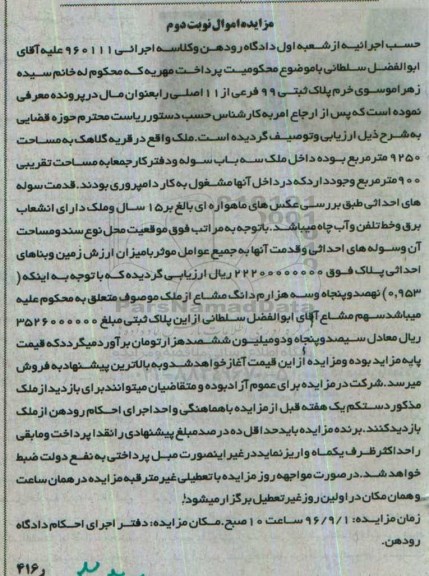 مزایده اموال نوبت دوم
حسب اجرائیه از شعبه اول دادگاه رودهن وکلاسه اجرائی ۹۶۰۱۱۱ علیه آقای
ابوالفضل سلطانی باموضوع محکومیت پرداخت مهریه که محکوم له خانم سیده
زهراموسوی خرم پلاک ثبتی ۹۹ فرعی از ۱۱ اصلی رابعنوان مال درپرونده معرفی
نموده است که پس از ارجاع امربه کارشناس حسب دستور ریاست محترم حوزه قضایی
به شرح ذیل ارزیابی وتوصیف گردیده است.ملک واقع درقریه گلاهک به مساحت
۹۲۵۰ مترمربع بوده داخل ملک سه باب سوله ودفتر کارجمعابه مساحت تقریبی
۹۰۰ متر مربع وجودداردکه درداخل آنها مشغول به کار دامپروری بودند.قدمت سوله
های احداثی طبق بررسی عکس های ماهواره ای بالغ بر ۱۵ سال وملک دارای انشعاب
برق وخط تلفن وآب چاه میباشد.باتوجه به مراتب فوق موقعیت محل نوع سندومساحت
آن وسوله های احداثی وقدمت آنها به جمیع عوامل موثربامیزان ارزش زمین وبناهای
احداثی پلاک فوق ۲۲۲۰۰۰۰۰۰۰۰ ریال ارزیابی گردیده که با توجه به اینکه (
۰,۹۵۳) نهصدوپنجاه وسه هزارم دانگ مشاع از ملک موصوف متعلق به محکوم علیه
میباشدسهم مشاع آقای ابوالفضل سلطانی از این پلاک ثبتی مبلغ ۳۵۲۶۰۰۰۰۰۰
ریال معادل سیصدوپنجاه ودومیلیون ششصدهزارتومان برآوردمیگرددکه قیمت
پایه مزایده بوده ومزایده از این قیمت آغازخواهدشدوبه بالاترین پیشنهادبه فروش
میرسد.شرکت درمزایده برای عموم آزادبوده ومتقاضیان میتوانندبرای بازدیدازملک
مذکوردستکم یک هفته قبل ازمزایده باهماهنگی واحداجرای احکام رودهن ازملک
بازدیدکنند.برنده مزایده بایدحداقل ده درصدمبلغ پیشنهادی رانقدا پرداخت ومابقی
راحداکثرظرف یکماه واریزنمایددرغیراینصورت مبلغ پرداختی به نفع دولت ضبط
خواهدشد.درصورت مواجهه روز مزایده باتعطیلی غیرمترقبه مزایده درهمان ساعت
وهمان مکان دراولین روزغیرتعطیل برگزارمیشود.
زمان مزایده: ۹۶/۹/۱ ساعت ۱۰صبح.مکان مزایده: دفتر اجرای احکام دادگاه
رودهن.
ر۴۱۶